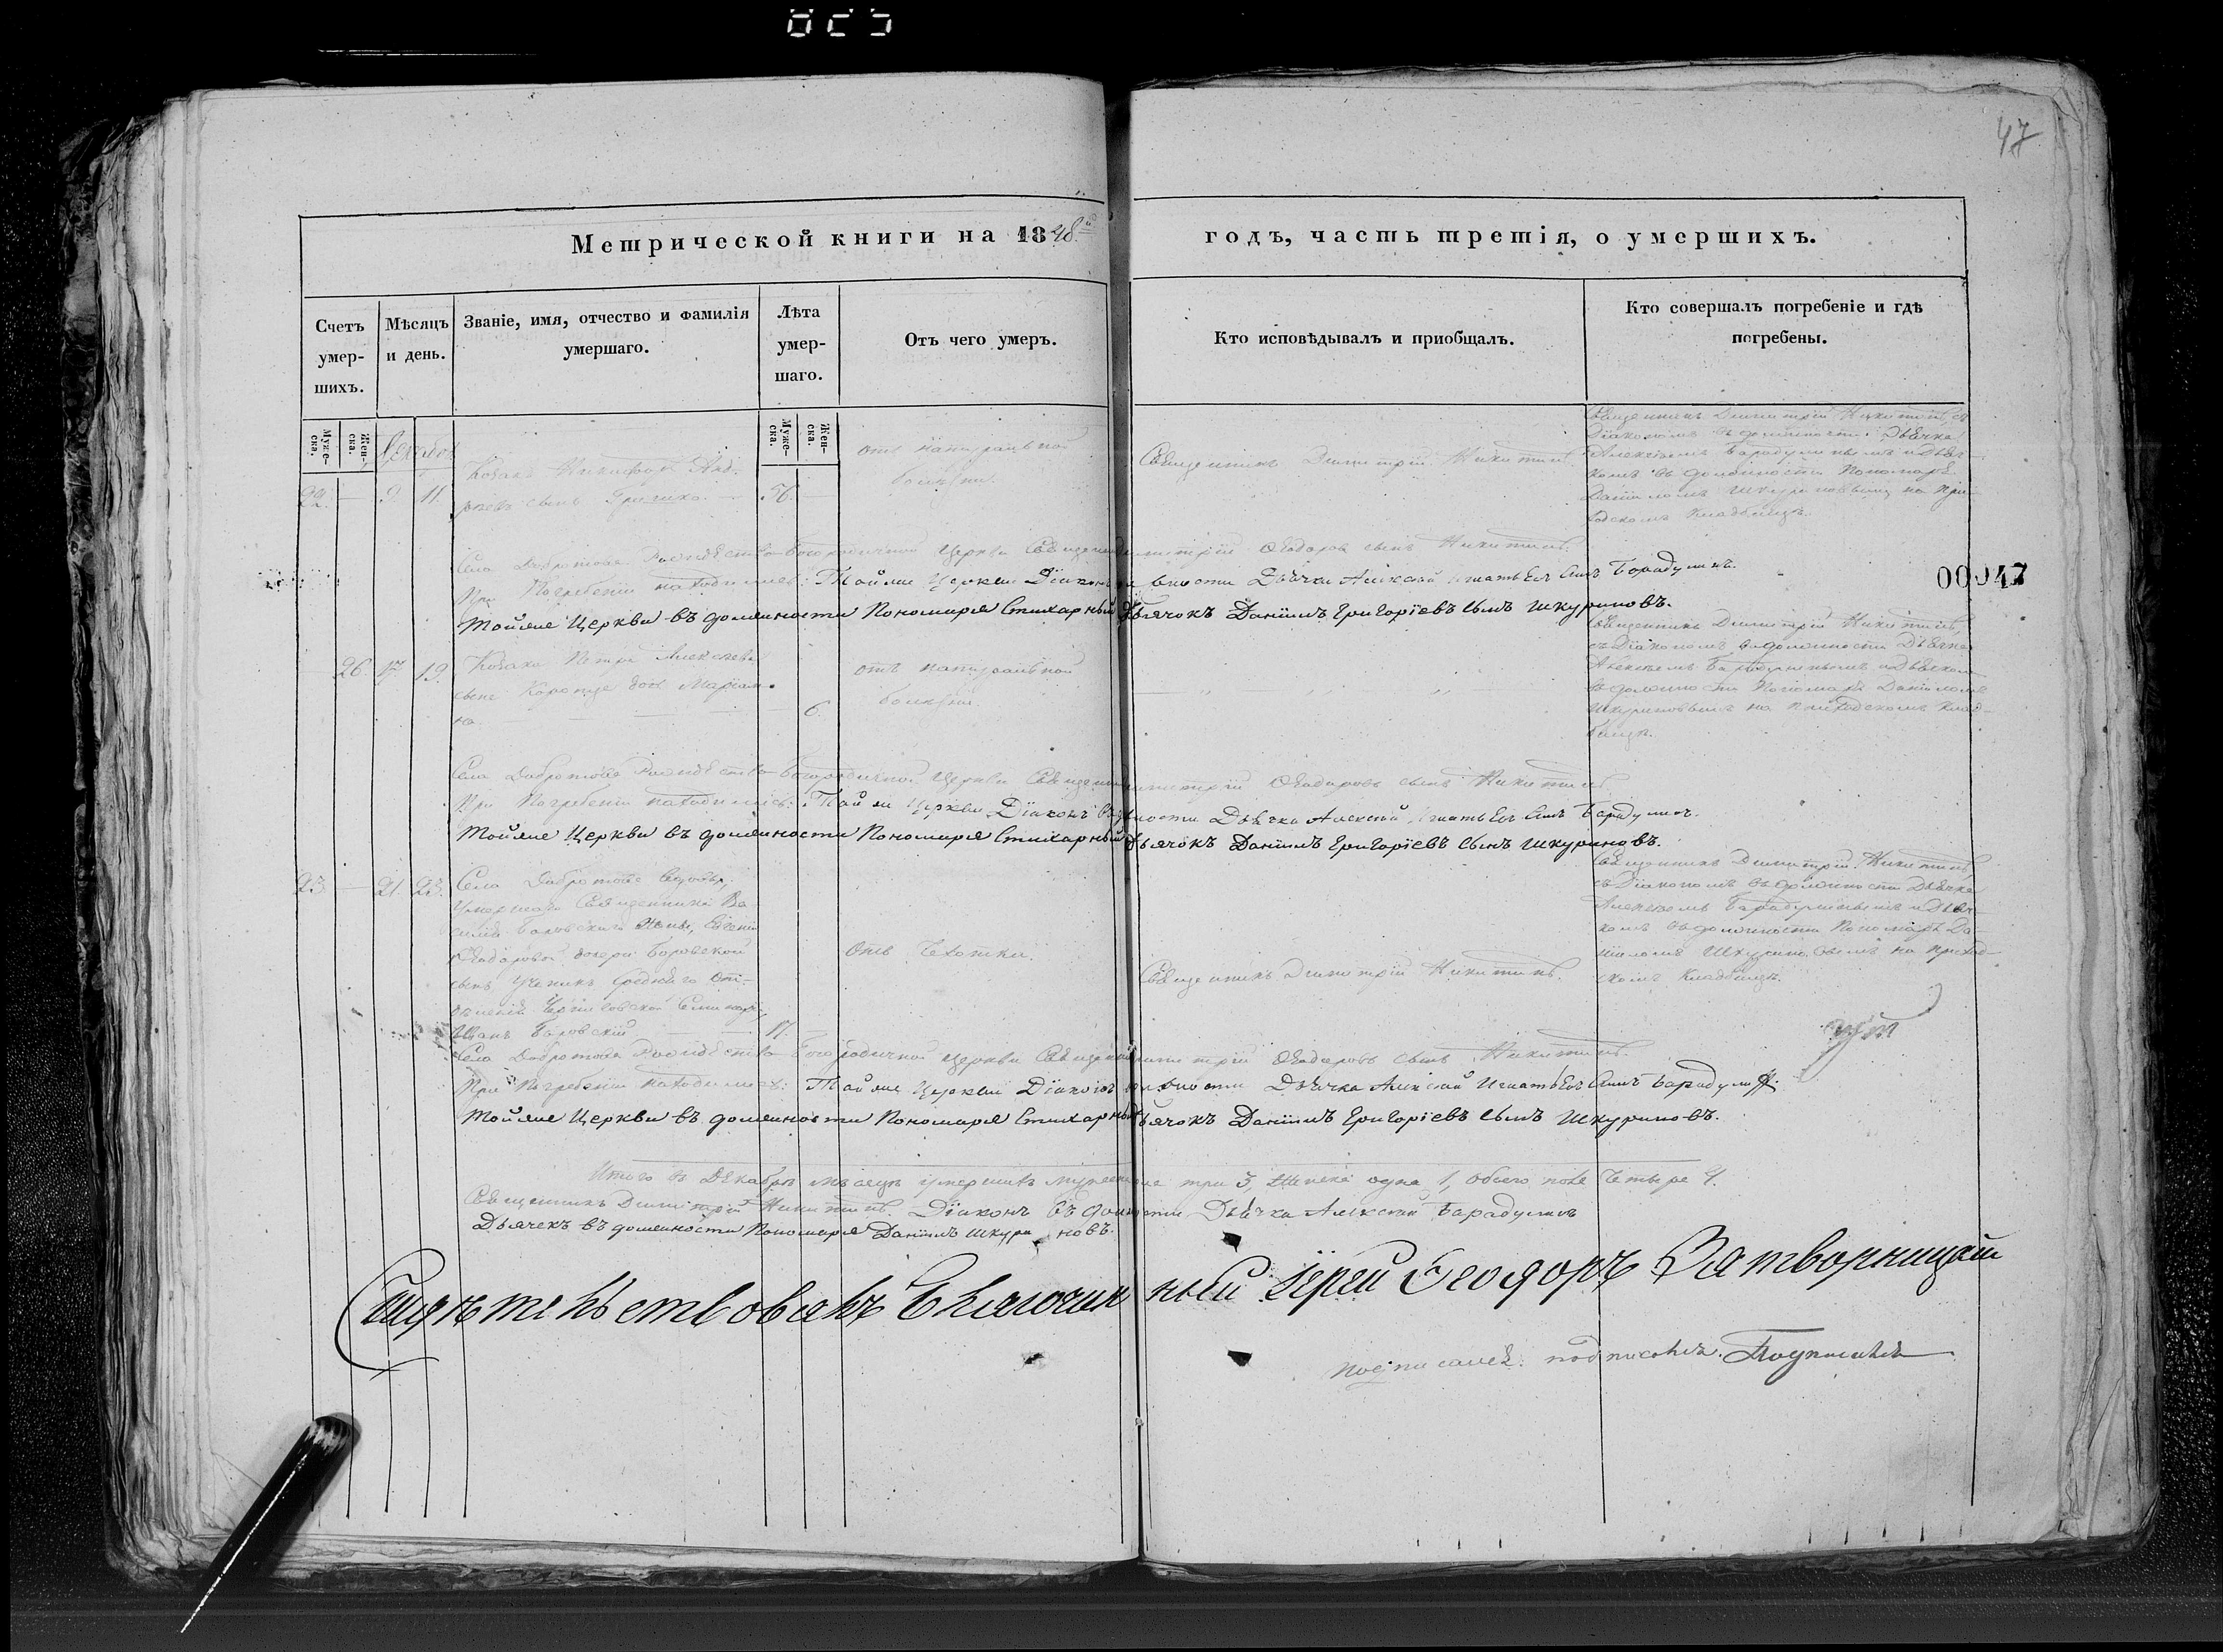 47
Метрической книги на 1848й годъ, часть третія, о умершихъ.
Счетъ умер-шихъ.
Мѣсяцъ и день.
Званіе, имя, отчество и фамилія умершаго.
Лѣта умер-шаго.
Отъ чего умеръ.
Кто исповѣдывалъ и пріобщалъ.
Кто совершалъ погребеніе и гдѣ погребены.
Муже-ска.
Жен-ска.
Муже-ска.
Жен-ска.
Декабрь
22. — 9. 11.
Козакъ Никифоръ
сынъ Гришко. — 56.
отъ натуральной
болѣзни.
Священникъ Димитрій Никитинъ.
Священникъ Димитрій Никитинъ, съ
Діакономъ въ должности Дьячка
Алексѣемъ Барадулинымъ и Дьяч-
комъ въ должности Пономаря
Даніиломъ Шкуриновымъ на при-
ходскомъ Кладбищѣ.
Села Добротова Рождество Богородичной Церкви Священникъ Димитрій Ѳеодоровъ сынъ Никитинъ.
При Погребеніи находились: Тойже Церкви Діаконъ въ должности Дьячка Алексѣй Игнатьевъ сынъ Барадулинъ.
Тойже Церкви въ должности Пономаря Стихарный Дьячокъ Даніилъ Григоріевъ сынъ Шкуриновъ.
00047
26. 17. 19.
Козака Петра Алексѣева
сына дочь Маріан-
на. 6.
отъ натуральной
болѣзни.
Священникъ Димитрій Никитинъ,
съ Діакономъ въ должности Дьячка
Алексѣемъ Барадулинымъ и Дьячкомъ
въ должности Пономаря Даніиломъ
Шкуриновымъ на приходскомъ Клад-
бищѣ.
Села Добротова Рождество Богородичной Церкви Священникъ Димитрій Ѳеодоровъ сынъ Никитинъ.
При Погребеніи находились: Тойже Церкви Діаконъ въ должности Дьячка Алексѣй Игнатьевъ сынъ Барадулинъ.
Тойже Церкви въ должности Пономаря Стихарный Дьячокъ Даніилъ Григоріевъ сынъ Шкуриновъ.
23. — 21. 23.
Села Добротова вдовы,
умершаго Священника Ва-
силія Боровскаго жены, Евгеніи
Ѳеодоровой дочери Боровской
сынъ Ученикъ средняго от-
дѣленія Черниговской Семинаріи,
Иванъ Боровскій — 17.
Отъ Чахотки.
Священникъ Димитрій Никитинъ.
Священникъ Димитрій Никитинъ,
съ Діакономъ въ должности Дьячка
Алексѣемъ Барадулинымъ и Дьяч-
комъ въ должности Пономаря Да-
ніиломъ Шкуриновымъ на приход-
скомъ Кладбищѣ.
Села Добротова Рождество Богородичной Церкви Священникъ Димитрій Ѳеодоровъ сынъ Никитинъ.
При Погребеніи находились: Тойже Церкви Діаконъ въ должности Дьячка Алексѣй Игнатьевъ сынъ Барадулинъ.
Тойже Церкви въ должности Пономаря Стихарный Дьячокъ Даніилъ Григоріевъ сынъ Шкуриновъ.
Итого въ Декабрѣ мѣсяцѣ умершихъ мужеска три 3, женска одна 1, обоего пола четыре 4.
Священникъ Димитрій Никитинъ. Діаконъ въ должности Дьячка Алексѣй Барадулинъ
Дьячекъ въ должности Пономаря Даніилъ Шкуриновъ.
Свидѣтельствовалъ Благочинный Іерей Ѳеодоръ Затворницкій
подписалъ. Подписалъ